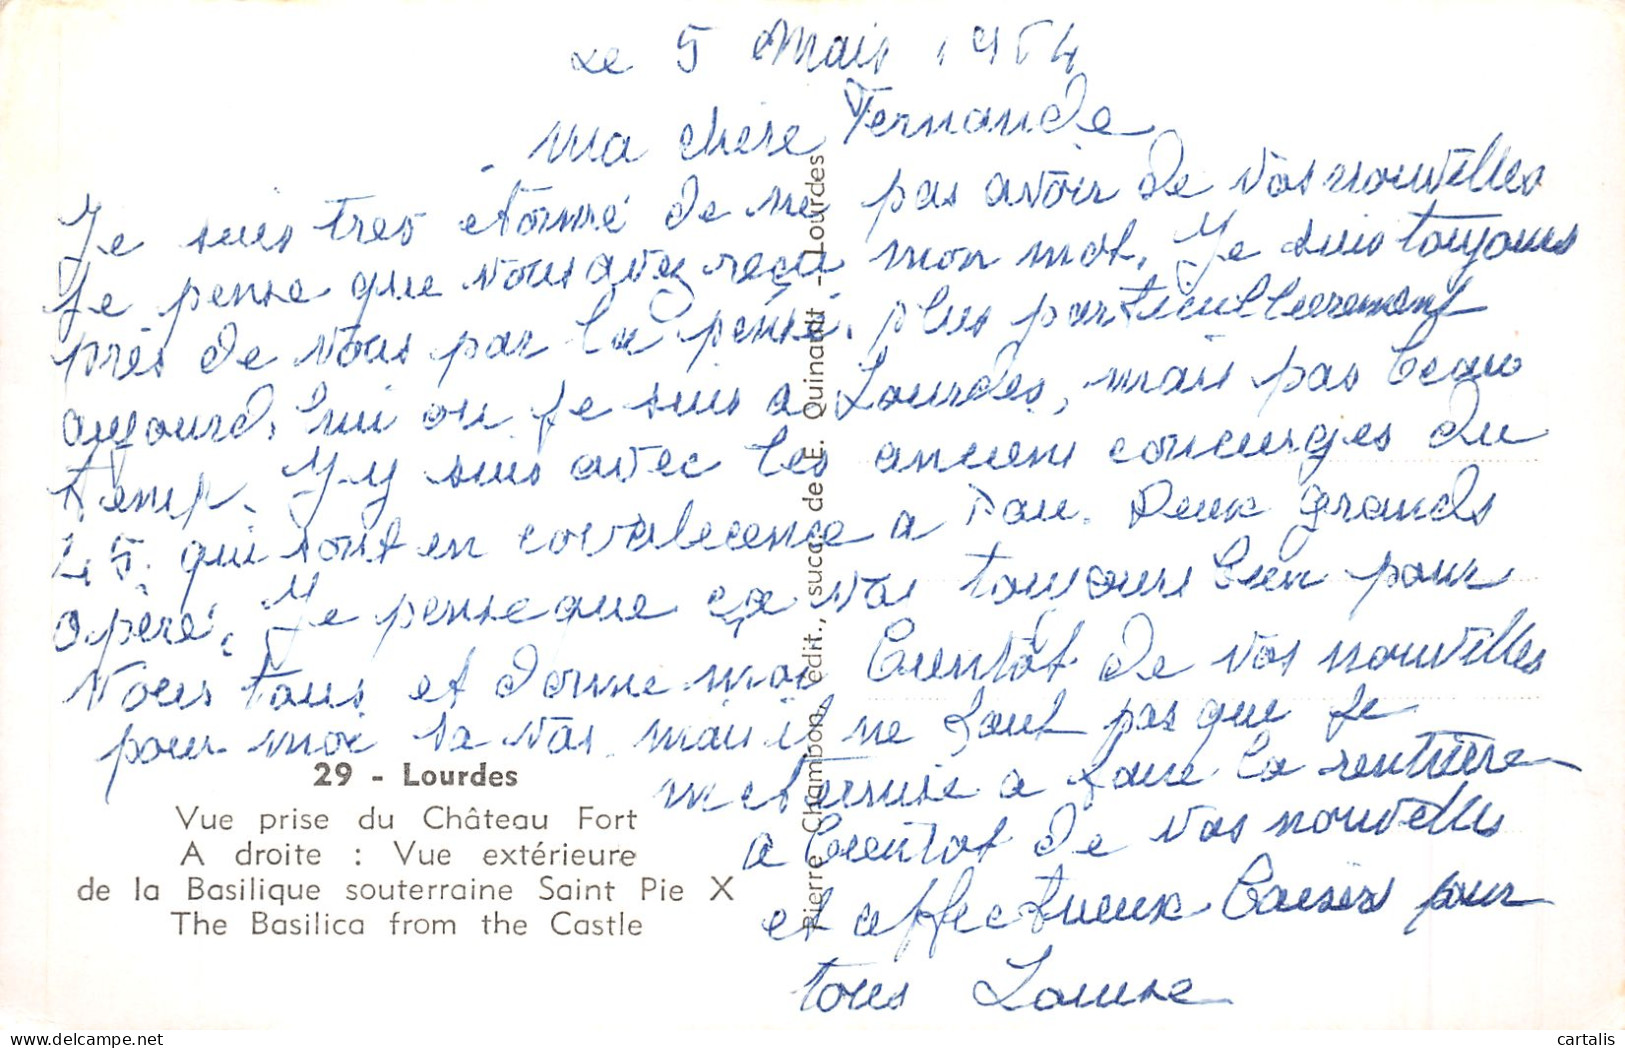 Le 5 Mais 1964
Ma chère Fernande
Je suis tres etonné de ne pas avoir de vos nouvelles
je pense que vous avez reçu mon mot. Je suis toujours
près de vous par la pensé. plus particullierement
aujourd, hui ou je suis a Lourdes, mais pas beau
temp. J'y suis avec les anciens concierges du
45. qui sont en covalecence a Pau. Deux grands
opéré. Je pense que ça vas toujours bien pour
vous tous et donne moi bientôt de vos nouvelles
pour moi sa vas mais il ne faut pas que je
m'eternise a faire la rentrière
a bientot de vos nouvelles
et affectueux baisers pour
tous Louise
29 - Lourdes
Vue prise du Château Fort
A droite : Vue extérieure
de la Basilique souterraine Saint Pie X
The Basilica from the Castle
Pierre Chambon, édit., succ. de E. Quinault - Lourdes
cartalis